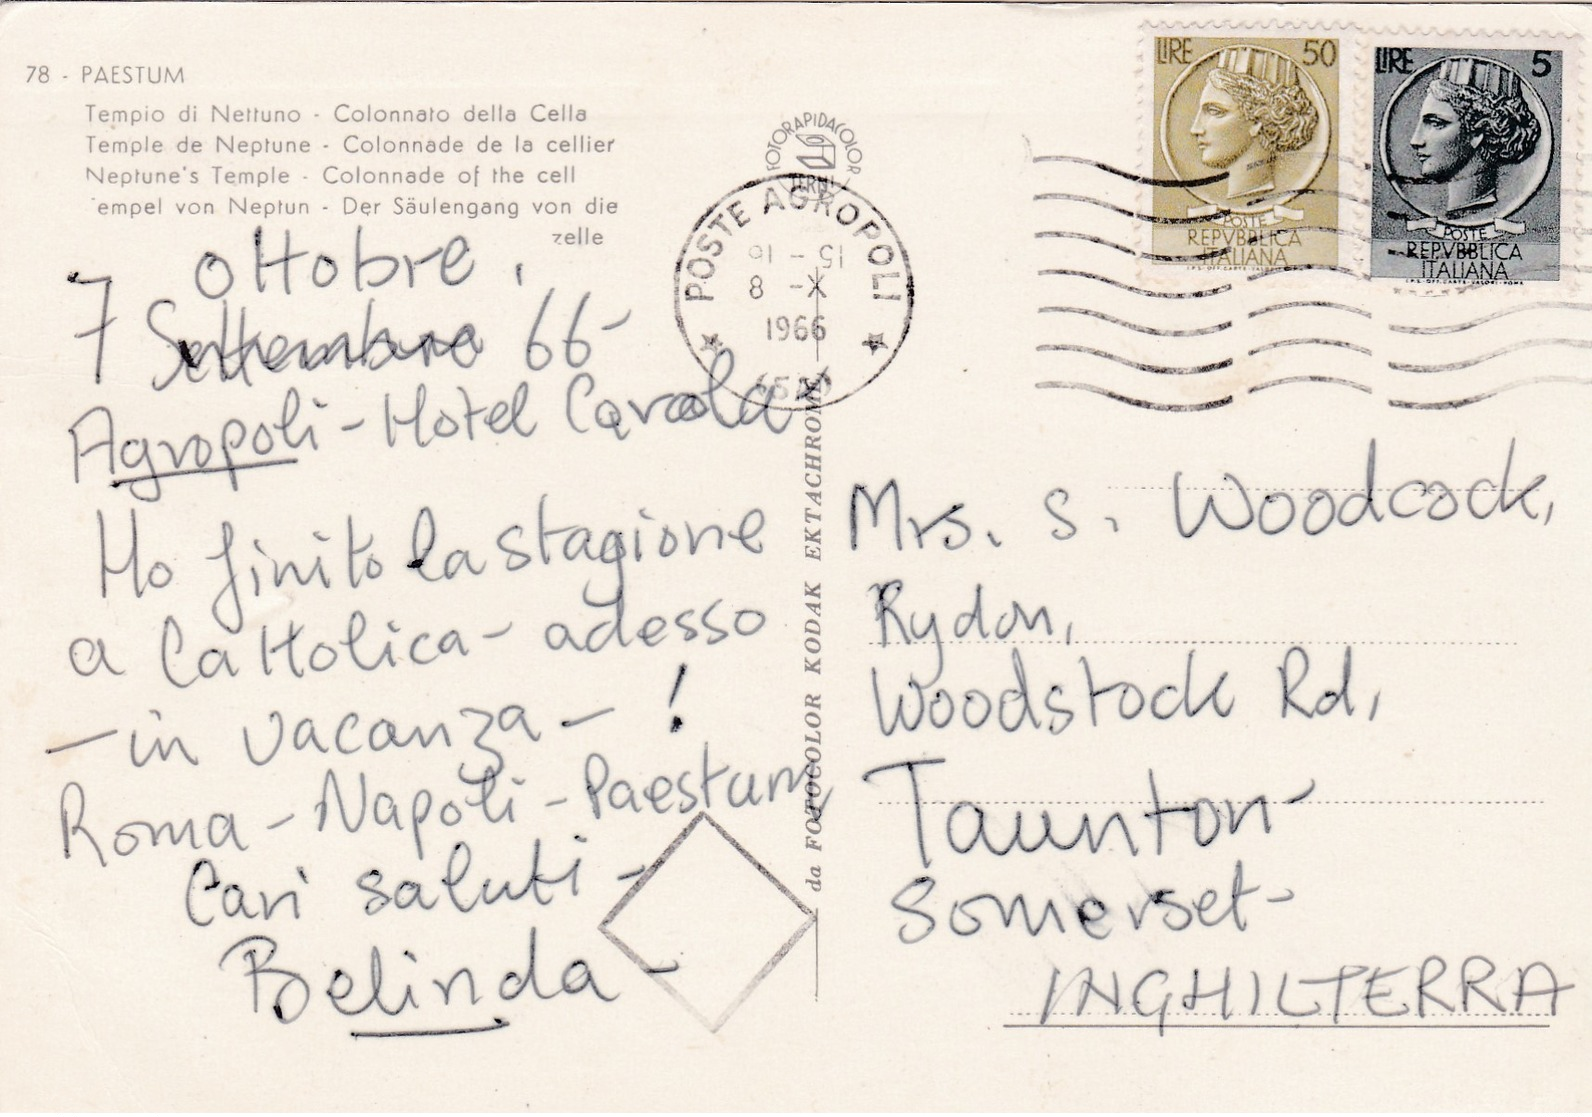 78 - PAESTUM
Tempio di Nettuno - Colonnato della Cella
Temple de Neptune - Colonnade de la cellier
Neptune's Temple - Colonnade of the cell
empel von Neptun - Der Säulengang von die
zelle
ottobre,
7 Settembre 66-
Agropoli - Hotel
Ho finito la stagione
a Cattolica - adesso
- in vacanza - !
Roma - Napoli - Paestum
Cari saluti -
Belinda -
FOTORAPIDACOLOR
TERNI
POSTE AGROPOLI
15 - 16
8 - X
1966
da FOTOCOLOR KODAK EKTACHROME
LIRE 50
POSTE
REPVBBLICA
ITALIANA
I.P.S. OFF. CARTE VALORI ROMA
LIRE 5
POSTE
REPVBBLICA
ITALIANA
I.P.S. OFF. CARTE VALORI ROMA
Mrs. S. Woodcock,
Rydon,
Woodstock Rd,
Taunton-
Somerset-
INGHILTERRA